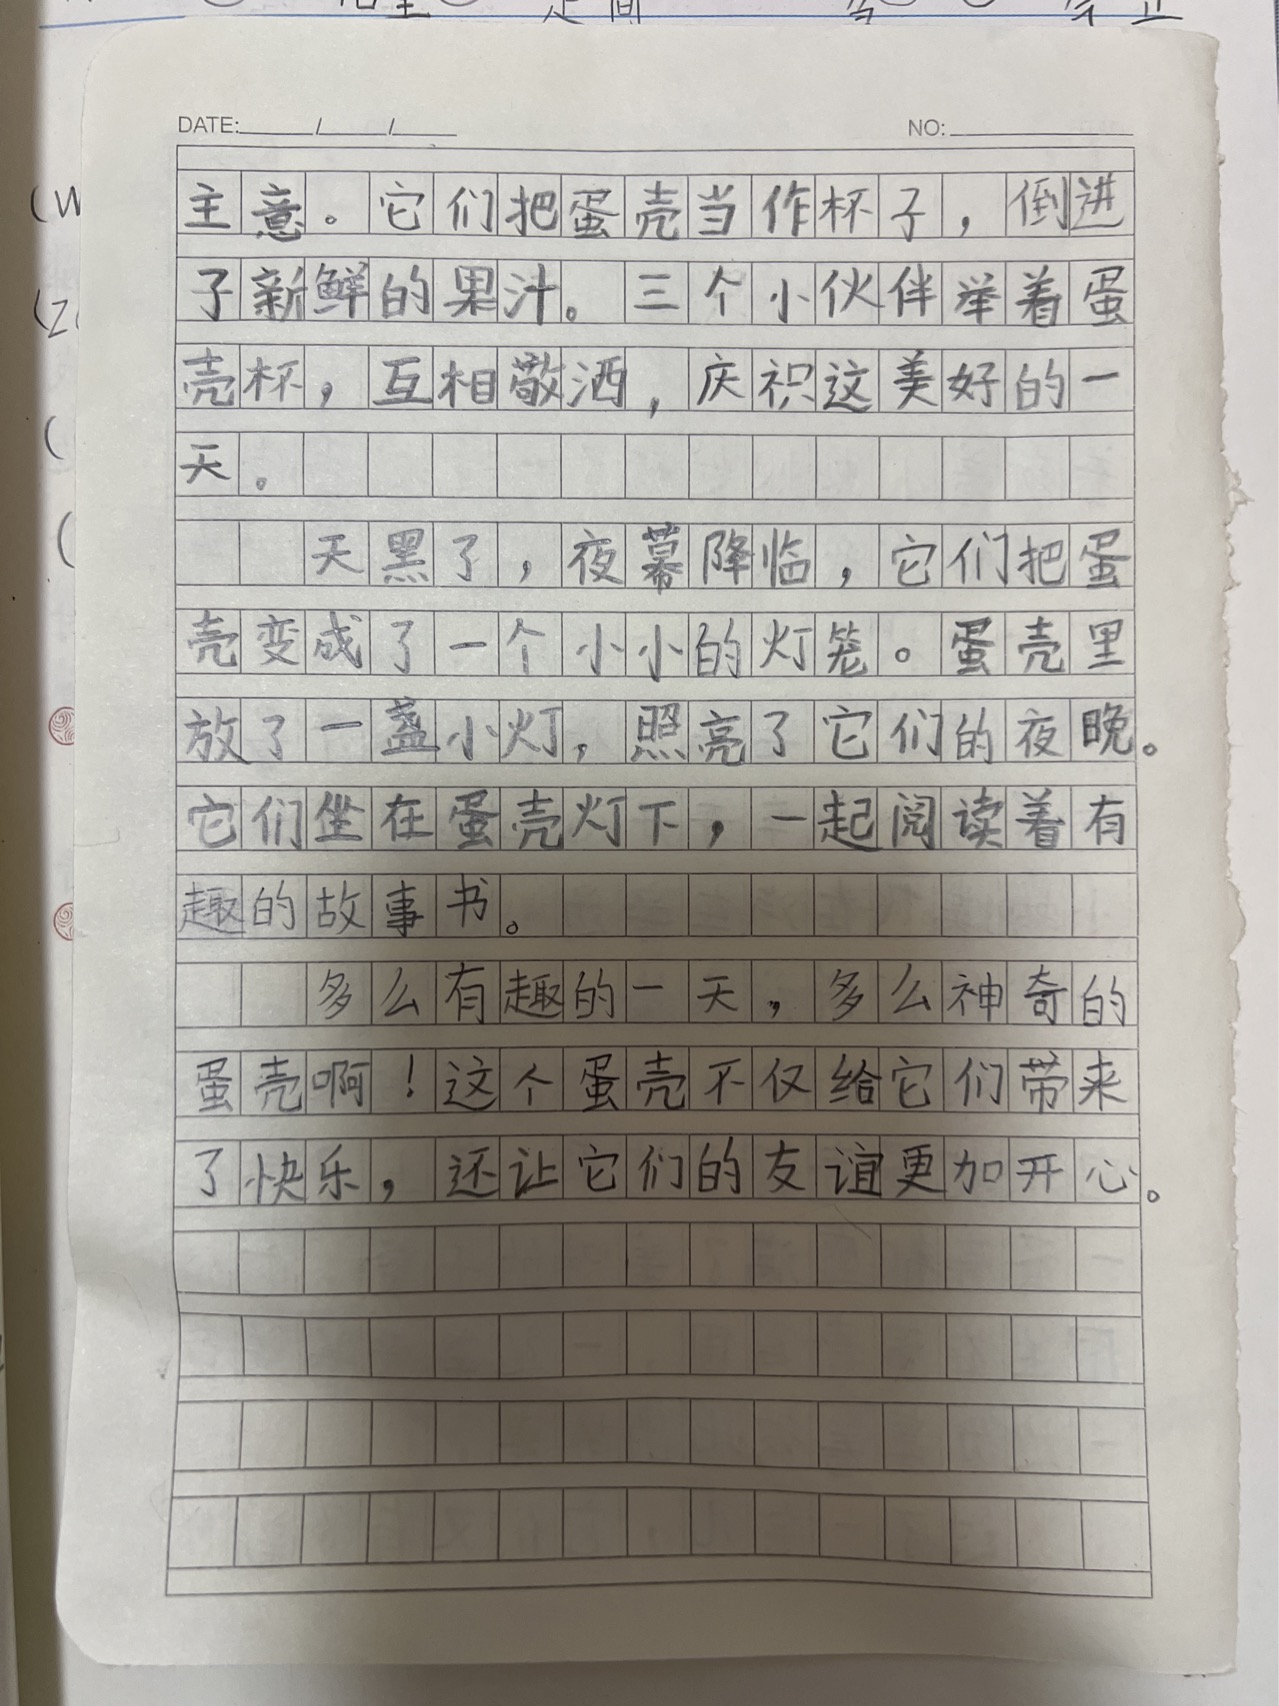 DATE: / /
NO:
主意。它们把蛋壳当作杯子，倒进
了新鲜的果汁。三个小伙伴举着蛋
壳杯，互相敬洒，庆祝这美好的一
天。
天黑了，夜幕降临，它们把蛋
壳变成了一个小小的灯笼。蛋壳里
放了一盏小灯，照亮了它们的夜晚。
它们坐在蛋壳灯下，一起阅读着有
趣的故事书。
多么有趣的一天，多么神奇的
蛋壳啊！这个蛋壳不仅给它们带来
了快乐，还让它们的友谊更加开心。